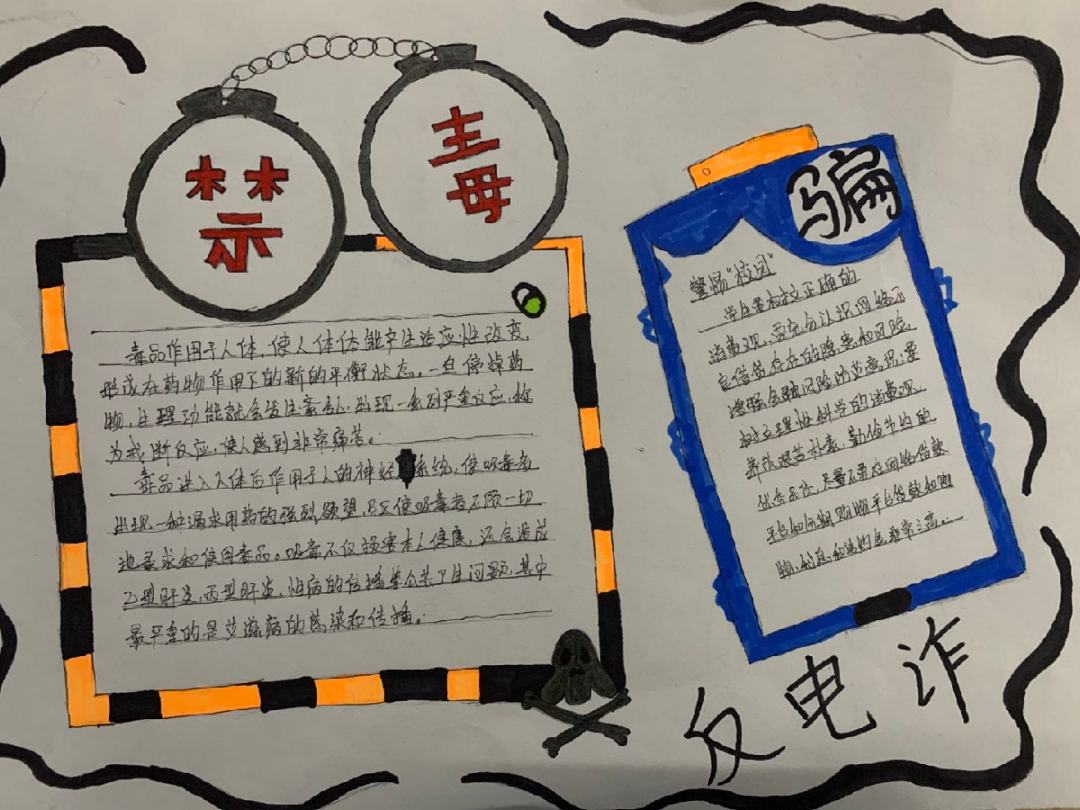 禁
毒
毒品作用于人体，使人体体能产生适应性改变，
形成在药物作用下的新的平衡状态。一旦停掉药
物，生理功能就会发生紊乱，出现一系列严重反应，称
为戒断反应，使人感到非常痛苦。
毒品进入人体后作用于人的神经系统，使吸毒者
出现一种渴求用药的强烈欲望，驱使吸毒者不顾一切
地寻求和使用毒品。吸毒不仅损害本人健康，还会造成
乙型肝炎，丙型肝炎，性病的传播等公共卫生问题，其中
最严重的是艾滋病的感染和传播。
骗
警惕“校园”
学生要树立正确的
消费观，要充分认识网络不
良借贷存在的隐患和风险，
增强金融风险防范意识；要
树立理性科学的消费观，
养成艰苦朴素、勤俭节约的
优秀品质，尽量不要在网络借款
平台和分期购物平台借款和购
物，利息和违约金非常之高。
反电诈